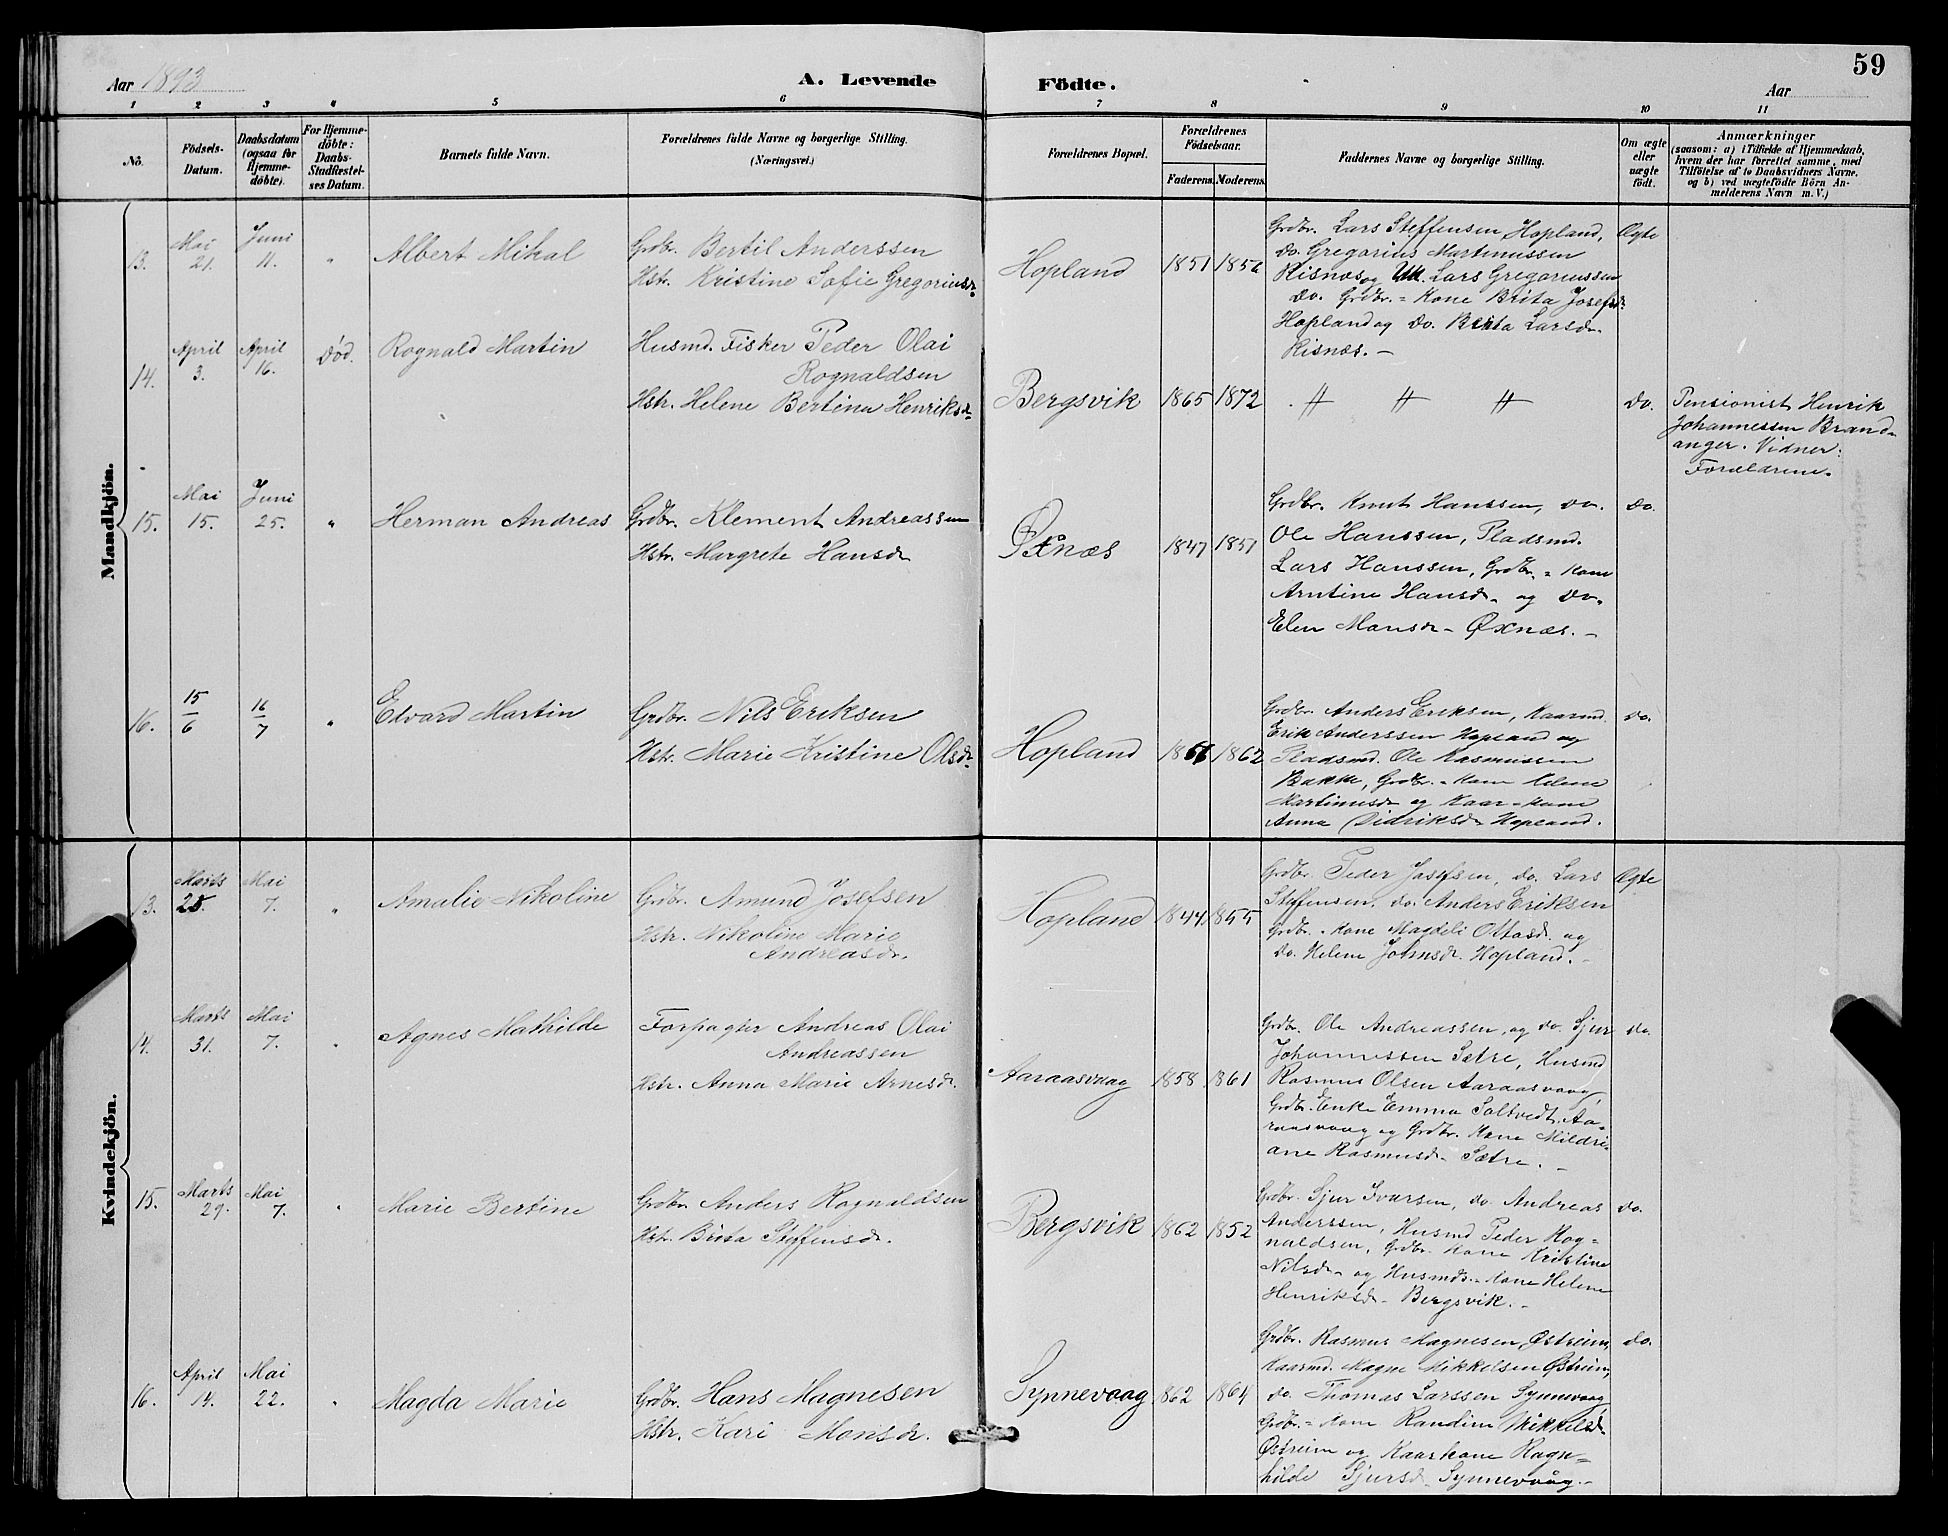 59
Aar 1893
A. Levende
Födte.
Aar
1 2 3 4 5 6 7 8 9 10 11
No.
Födsels-
Datum.
Daabsdatum
(ogsaa for
Hjemme-
döbte).
For Hjemme-
döbte:
Daabs-
Stadfæstel-
ses Datum.
Barnets fulde Navn.
Forældrenes fulde Navne og borgerlige Stilling.
(Næringsvei.)
Forældrenes Bopæl.
Forældrenes
Födselsaar.
Faderens. Moderens.
Faddernes Navne og borgerlige Stilling.
Om ægte
eller
uægte
födt.
Anmærkninger
(saasom: a) i Tilfælde af Hjemmedaab,
hvem der har forrettet samme, med
Tilföielse af to Daabsvidners Navne,
og b) ved uægtefödte Börn An-
melderens Navn m. V.)
Mandkjön.
13.
Mai
21.
Juni
11.
"
Albert Mikal
Grdbr. Bertil Anderssen
Hstr. Kristine Sofie Gregoriusdr.
Hopland
1851 1856
Grdbr. Lars Steffensen Hopland,
do. Gregorius Martinussen
Risnæs og Uk. Lars Gregoriussen
do. Grdbr. = Kone Brita Josefsdr.
Hopland og do. Brita Larsdr.
Risnæs. –
Ægte
14.
April
3.
April
16.
Död.
Rognald Martin
Husmd. Fisker Peder Olai
Rognaldsen
Hstr. Helene Bertina Henriksdr.
Bergsvik
1865 1872
do.
Pensionist Henrik
Johannessen Brand-
anger. Vidner:
Forældrene.
15.
Mai
15.
Juni
25.
"
Herman Andreas
Grdbr. Klement Andreassen
Hstr. Margrete Hansdr
Øxnæs
1847 1851
Grdbr. Knut Hanssen, do.
Ole Hanssen, Pladsmd.
Lars Hanssen, Grdbr. = Kone
Arntine Hansdr. og do.
Elen Mansdr. Øxnæs. –
do.
16.
15
6
16
7
"
Edvard Martin
Grdbr. Nils Eriksen
Hstr. Marie Kristine Olsdr.
Hopland
1862
Grdbr. Anders Eriksen, Kaarmd.
Erik Anderssen Hopland og
Pladsmd. Ole Rasmussen
Bakke, Grdbr. = Kone Helene
Martinusdr og Kaar = Kone
Anna Didriksdr Hopland.
do.
Kvindekjön.
13.
Marts
25.
Mai
7.
"
Amalie Nikoline
Grdbr. Amund Josefsen
Hstr. Nikoline Marie
Andreasdr.
Hopland
1844 1855
Grdbr. Peder Josefsen, do. Lars
Steffensen, do. Anders Eriksen
Grdbr. = Kone Magdeli Ottosdr. og
do. Helene Johnsdr. Hopland. –
Ægte
14.
Marts
31.
Mai
7.
"
Agnes Mathilde
Forpagter Andreas Olai
Andreassen
Hstr. Anna Marie Arnesdr.
Aaraasvaag
1858 1861
Grdbr. Ole Andreassen, og do. Sjur
Johannessen Sætre, Husmd
Rasmus Olsen Aaraasvaag,
Grdbr. Enke Emma Soltvedt, Aa-
raasvaag og Grdbr. Kone Mildri-
ane Rasmusdr Sætre. –
do.
15.
Marts
29.
Mai
7.
"
Marie Bertine
Grdbr. Anders Rognaldsen
Hstr. Brita Steffensdr.
Bergsvik
1862 1852
Grdbr. Sjur Ivarsen, do. Andreas
Anderssen, Husmd Peder Rog-
naldsen, Grdbr. Kone Kristine
Nilsdr og Husmds. Kone Helene
Henriksdr Bergsvik. –
do.
16.
April
14.
Mai
22.
"
Magda Marie
Grdbr. Hans Magnesen
Hstr. Kari Monsdr.
Synnevaag
1862 1864
Grdbr. Rasmus Magnesen, Østreim,
Kaarmd. Magne Mikkelsen Østreim,
do. Thomas Larssen Synnevaag,
Grdbr. = Kone Randine Mikkelsdr.
Østreim og Kaarkone Ragn-
hilde Sjursdr. Synnevaag. –
do.